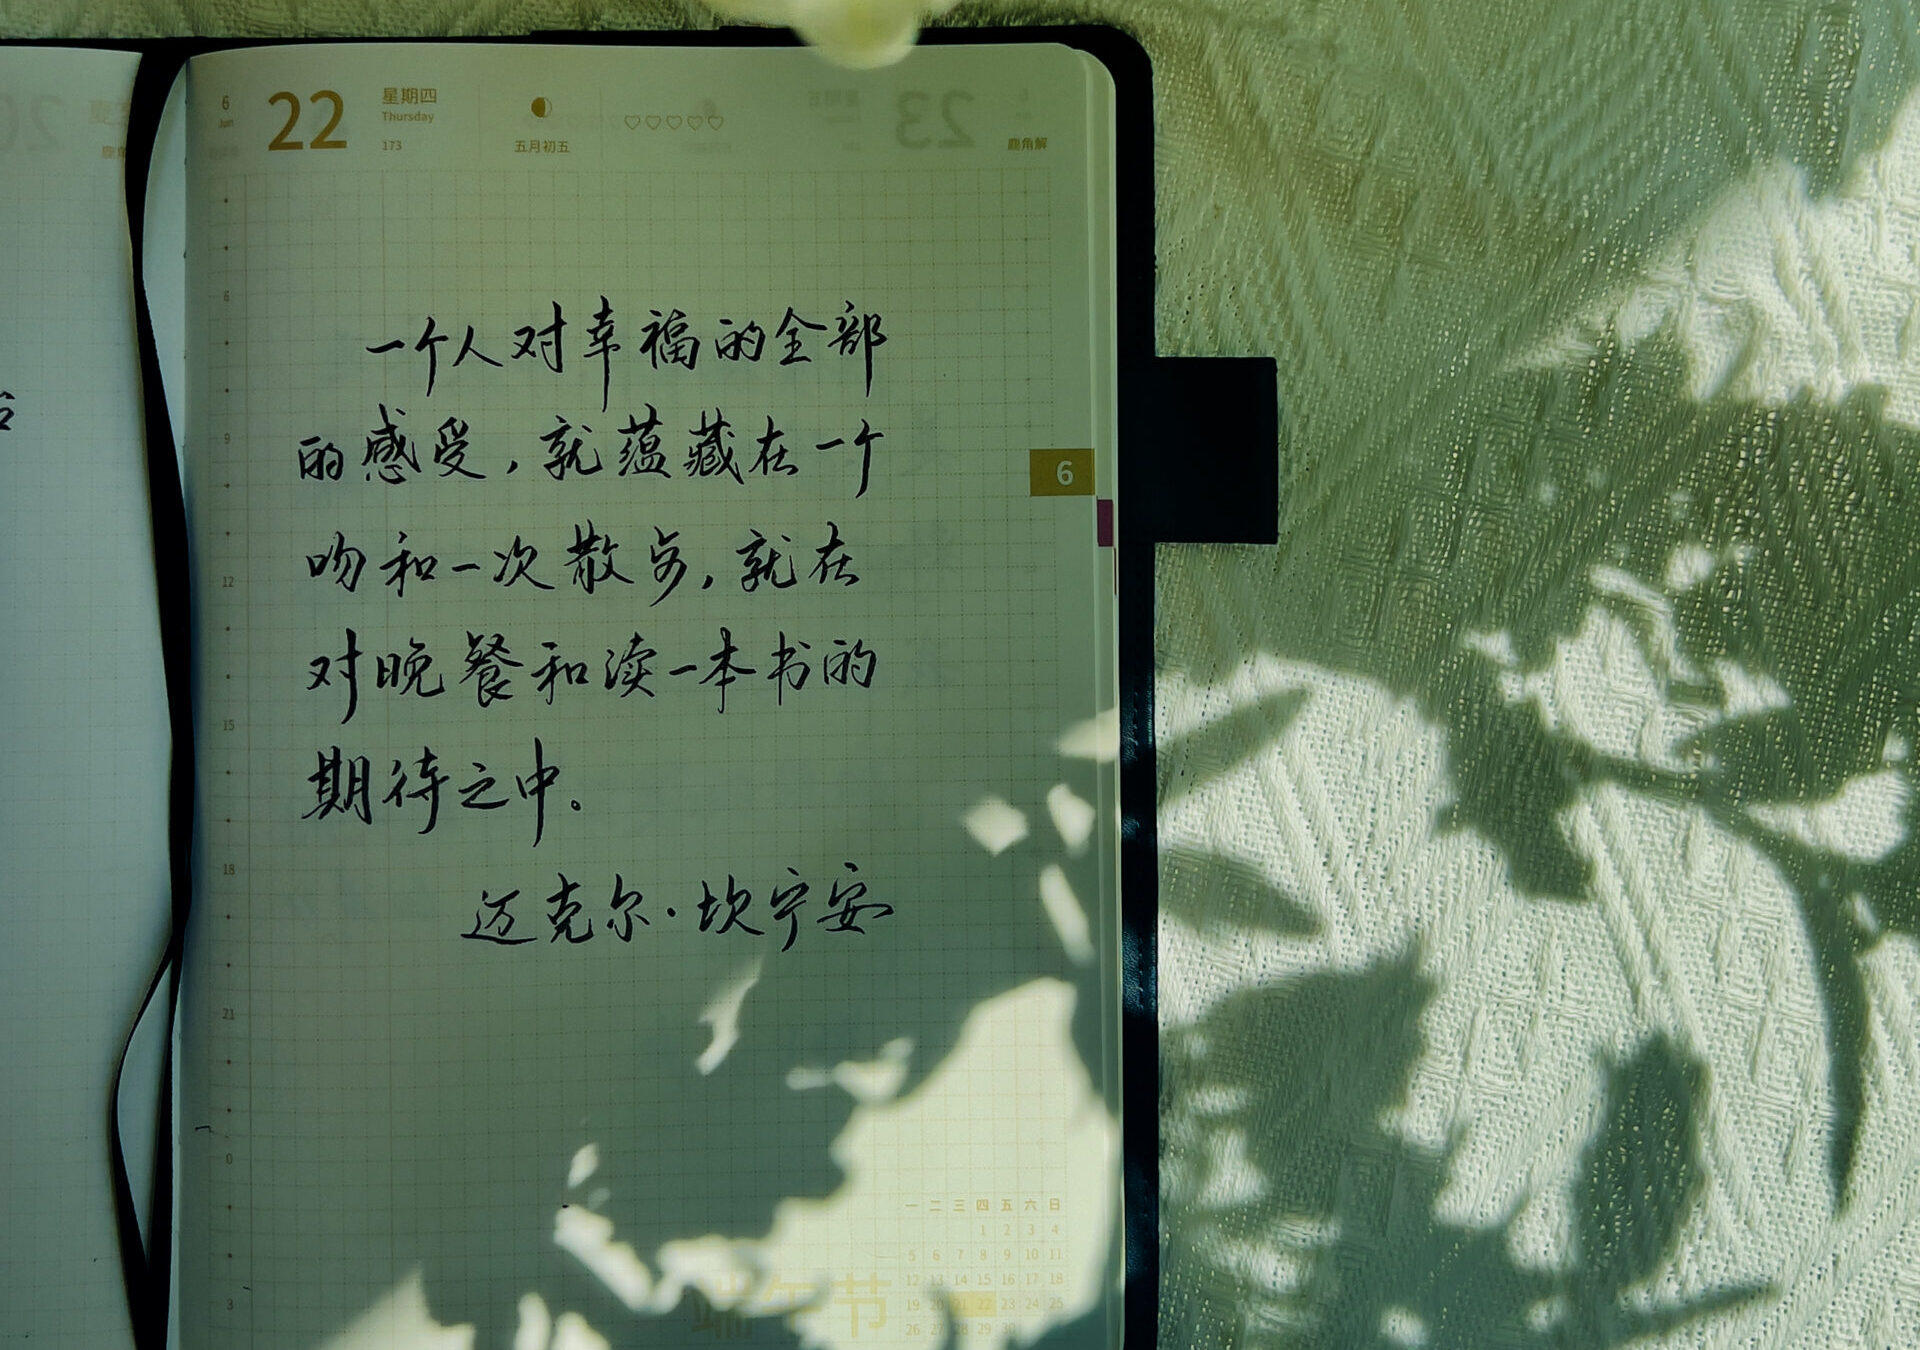 6
Jun
22
星期四
Thursday
173
五月初五
23
鹿角解
一个人对幸福的全部
的感受，就蕴藏在一个
吻和一次散步，就在
对晚餐和读一本书的
期待之中。
迈克尔·坎宁安
6
9
12
15
18
21
0
3
6
一 二 三 四 五 六 日
1 2 3 4
5 6 7 8 9 10 11
12 13 14 15 16 17 18
19 20 21 22 23 24 25
26 27 28 29 30
端午节